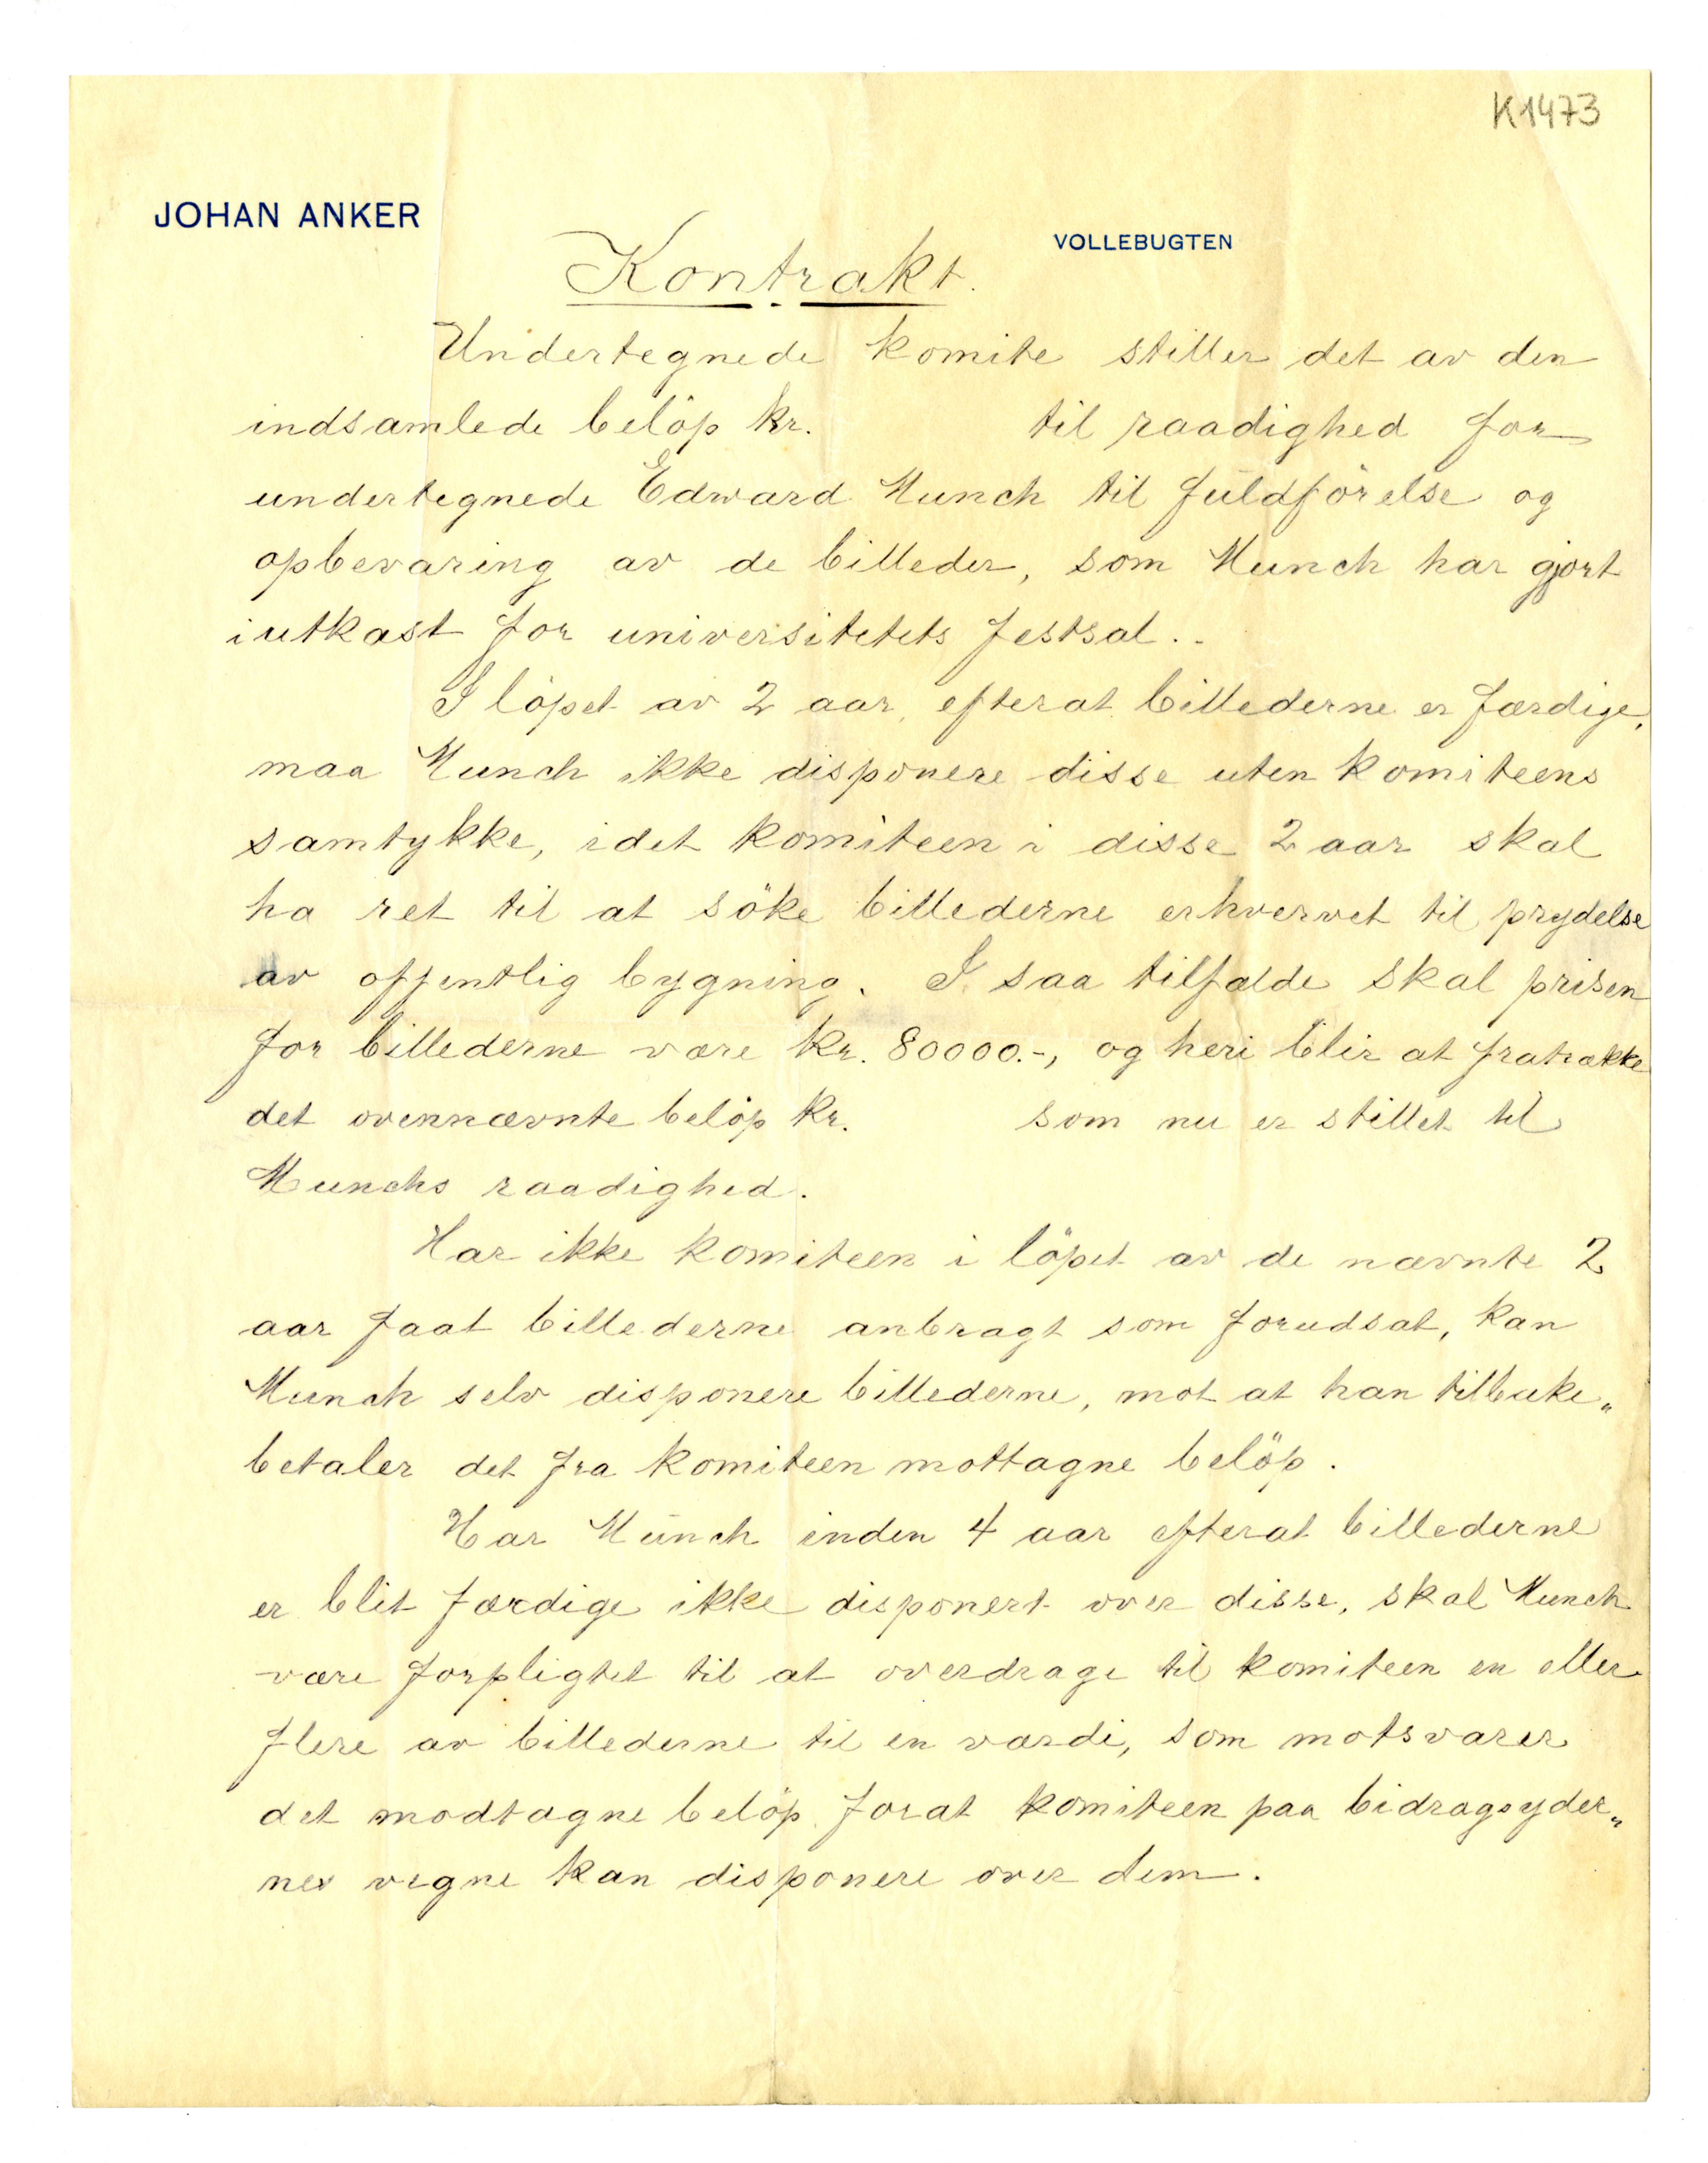 K1473
JOHAN ANKER
VOLLEBUGTEN
Kontrakt.
Undertegnede komite stiller det av den
indsamlede belöp kr. til raadighed for
undertegnede Edward Munch til fuldförelse og
opbevaring av de billeder, som Munch har gjort
i utkast for universitetets festsal..
I löpet av 2 aar, efterat billederne er færdige,
maa Munch ikke disponere disse uten komiteens
samtykke, idet komiteen i disse 2 aar skal
ha ret til at söke billederne erhvervet til prydelse
av offentlig bygning. I saa tilfælde skal prisen
for billederne være kr. 80000.-, og heri blir at fratrække
det ovennævnte belöp kr. som nu er stillet til
Munchs raadighed.
Har ikke komiteen i löpet av de nævnte 2
aar faat billederne anbragt som forudsat, kan
Munch selv disponere billederne, mot at han tilbake„
betaler det fra komiteen mottagne belöp.
Har Munch inden 4 aar efterat billederne
er blit færdige ikke disponert over disse, skal Munch
være forpligtet til at overdrage til komiteen en eller
flere av billederne til en værdi, som motsvarer
det modtagne belöp forat komiteen paa bidragsyder„
nes vegne kan disponere over dem.